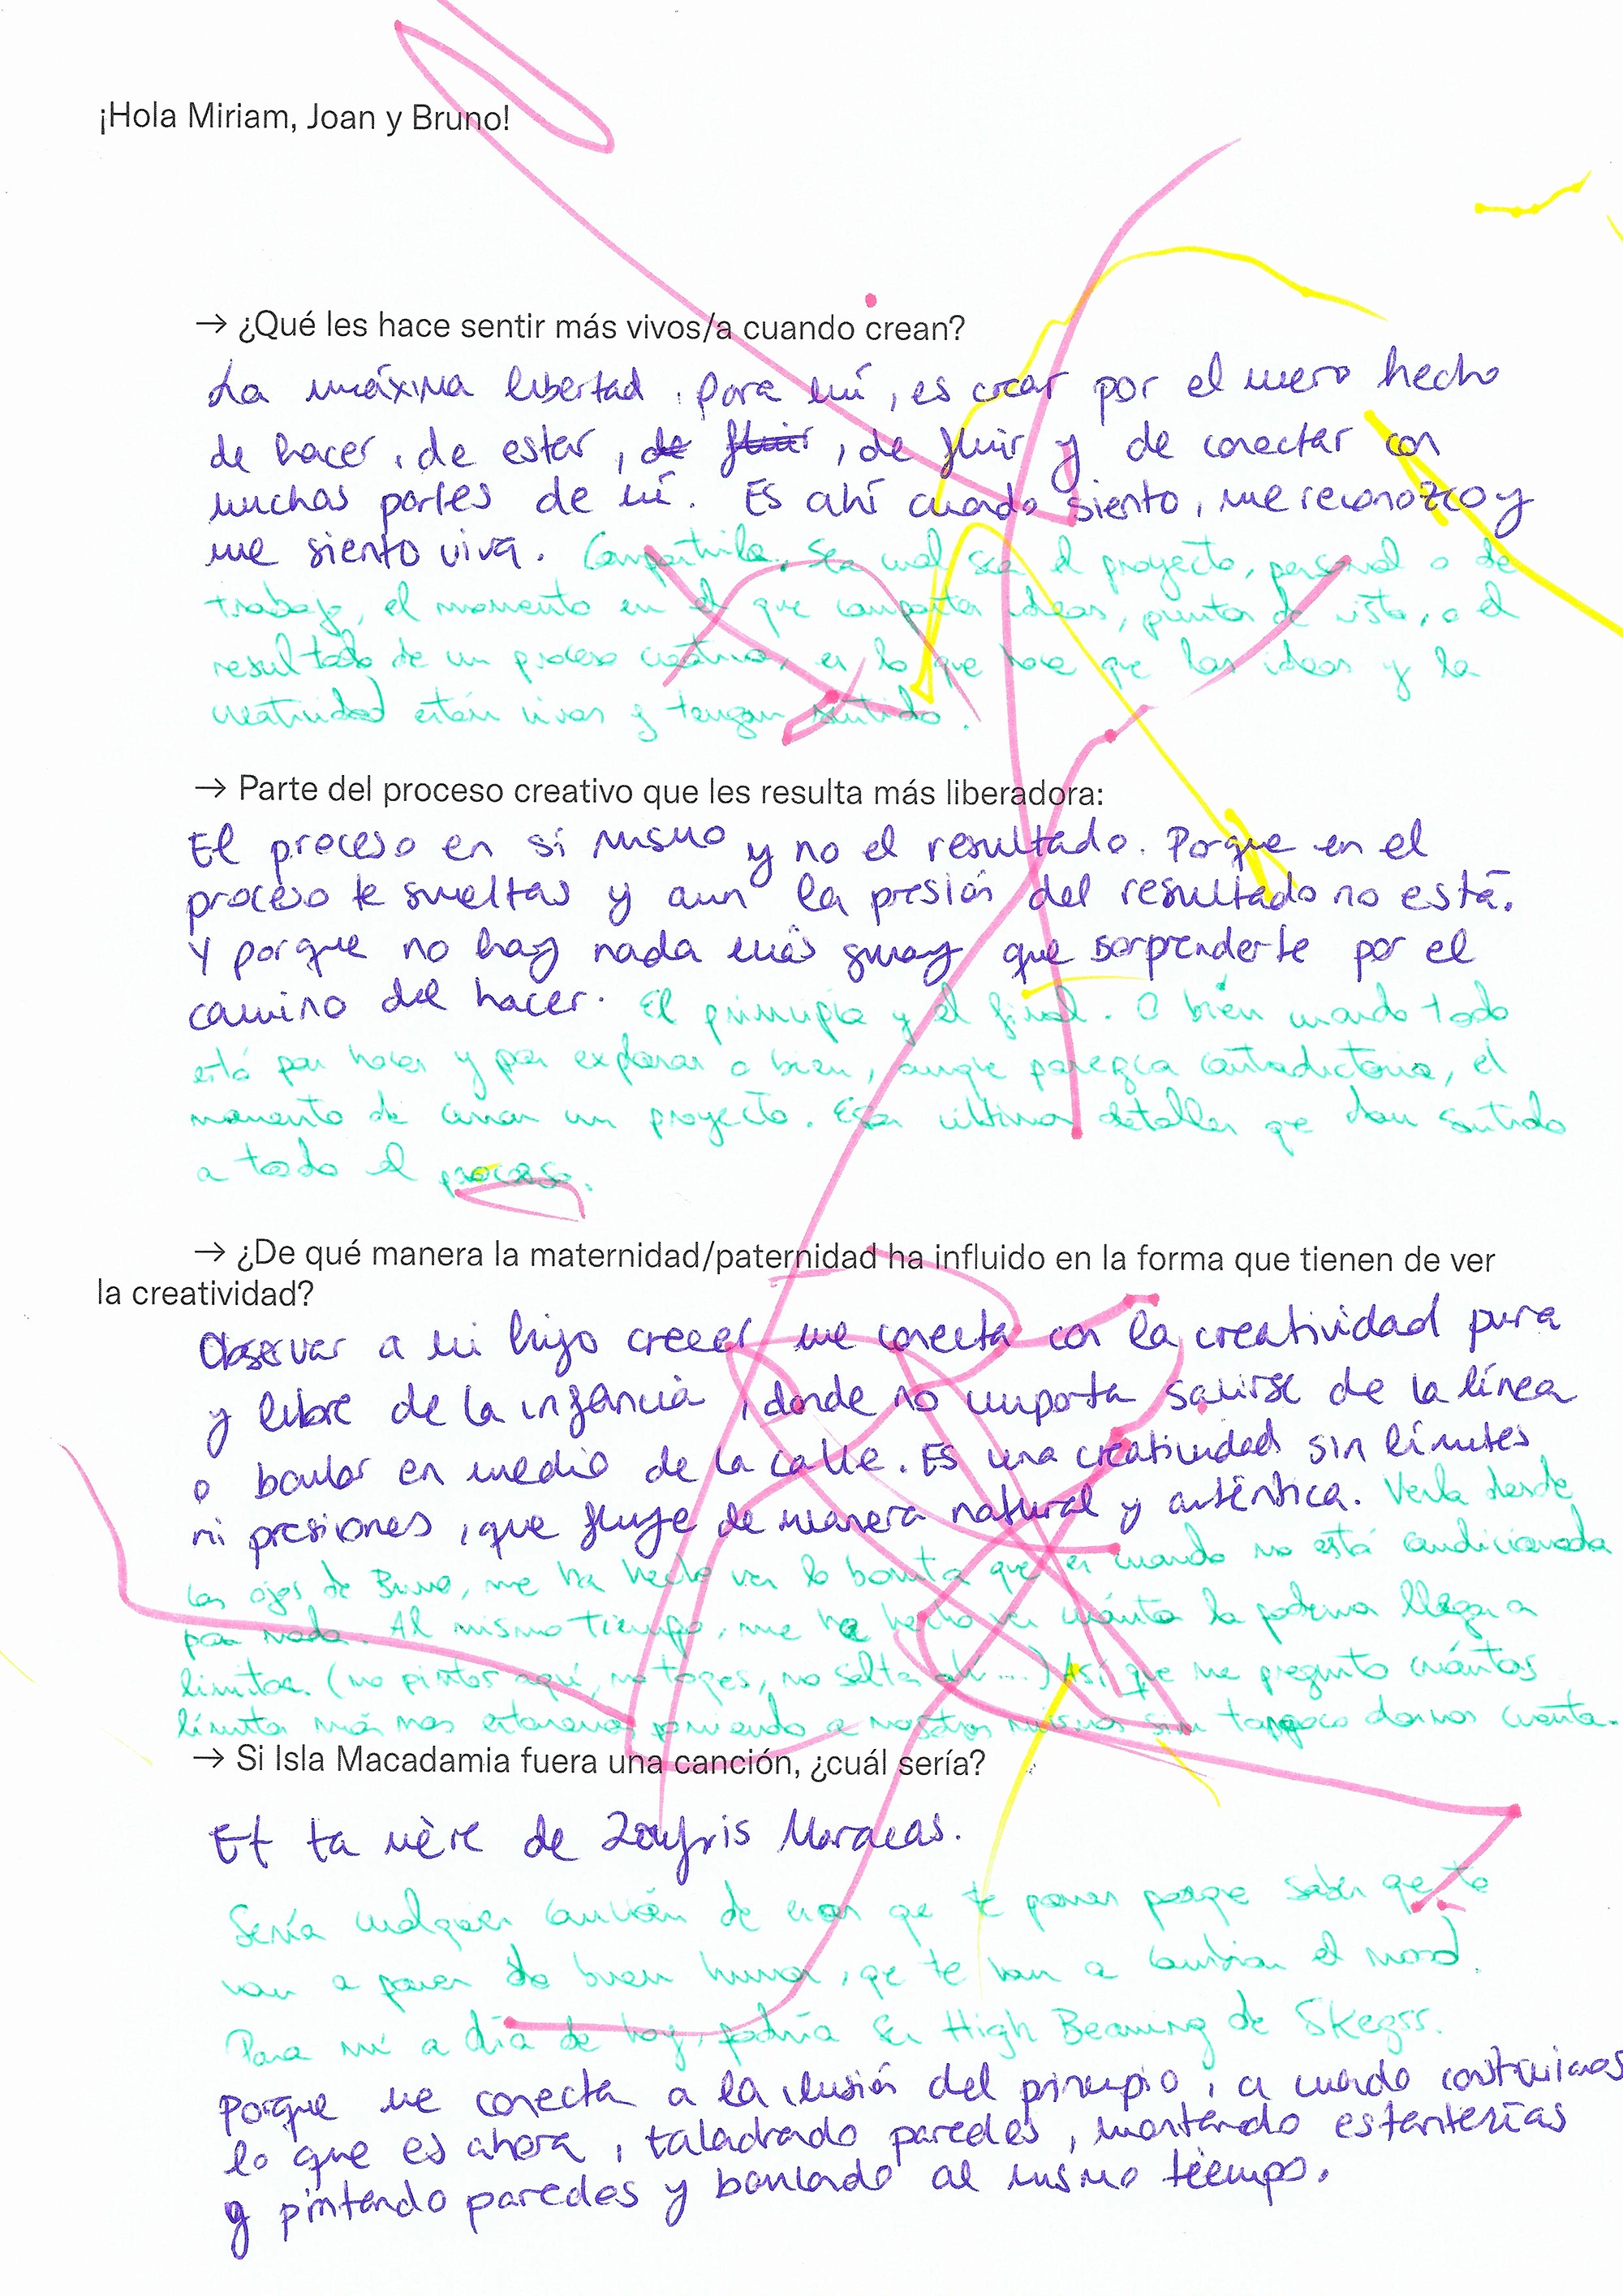 ¡Hola Miriam, Joan y Bruno!
→ ¿Qué les hace sentir más vivos/a cuando crean?
La máxima libertad, para mí, es crear por el mero hecho
de hacer, de estar, de fluir, de fluir y de conectar con
muchas partes de mí. Es ahí cuando siento, me reconozco y
me siento viva. Compartirla. Sea cual sea el proyecto, personal o de
trabajo, el momento en el que compartes ideas, puntos de vista, o el
resultado de un proceso creativo, es lo que hace que las ideas y la
creatividad estén vivas y tengan sentido.
→ Parte del proceso creativo que les resulta más liberadora:
El proceso en sí mismo y no el resultado. Porque en el
proceso te sueltas y aun la presión del resultado no está.
Y porque no hay nada más guay que sorprenderte por el
camino del hacer. El principio y el final. O bien cuando todo
está por hacer y por explorar o bien, aunque parezca contradictorio, el
momento de cerrar un proyecto. Esos últimos detalles que dan sentido
a todo el proceso.
→ ¿De qué manera la maternidad/paternidad ha influido en la forma que tienen de ver
la creatividad?
Observar a mi hijo creeer me conecta con la creatividad pura
y libre de la infancia, donde no importa salirse de la línea
o bailar en medio de la calle. Es una creatividad sin límites
ni presiones, que fluye de manera natural y auténtica. Verla desde
los ojos de Bruno, me ha hecho ver lo bonita que es cuando no está condicionada
por nada. Al mismo tiempo, me ha hecho ver cuánto la podemos llegar a
limitar. (no pintes aquí, no toques, no saltes ahí...) Así que me pregunto cuántos
límites más nos estaremos poniendo a nosotros mismos sin tampoco darnos cuenta.
→ Si Isla Macadamia fuera una canción, ¿cuál sería?
Et ta mère de Zoufris Maracas.
Sería cualquier canción de esas que te pones porque sabes que te
van a poner de buen humor, que te van a cambiar el mood.
Para mí a día de hoy, podría ser High Beaming de Skegss.
Porque me conecta a la ilusión del principio, a cuando construimos
lo que es ahora, taladrando paredes, montando estanterías
y pintando paredes y bailando al mismo tiempo.